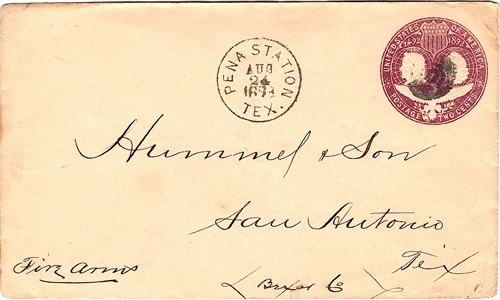 PENA STATION
AUG
24
1893
TEX.
UNITED STATES OF AMERICA
1492 1892
POSTAGE TWO CENTS
Hummel & Son
San Antonio
Tex
Fire Arms
( Bexar Co )